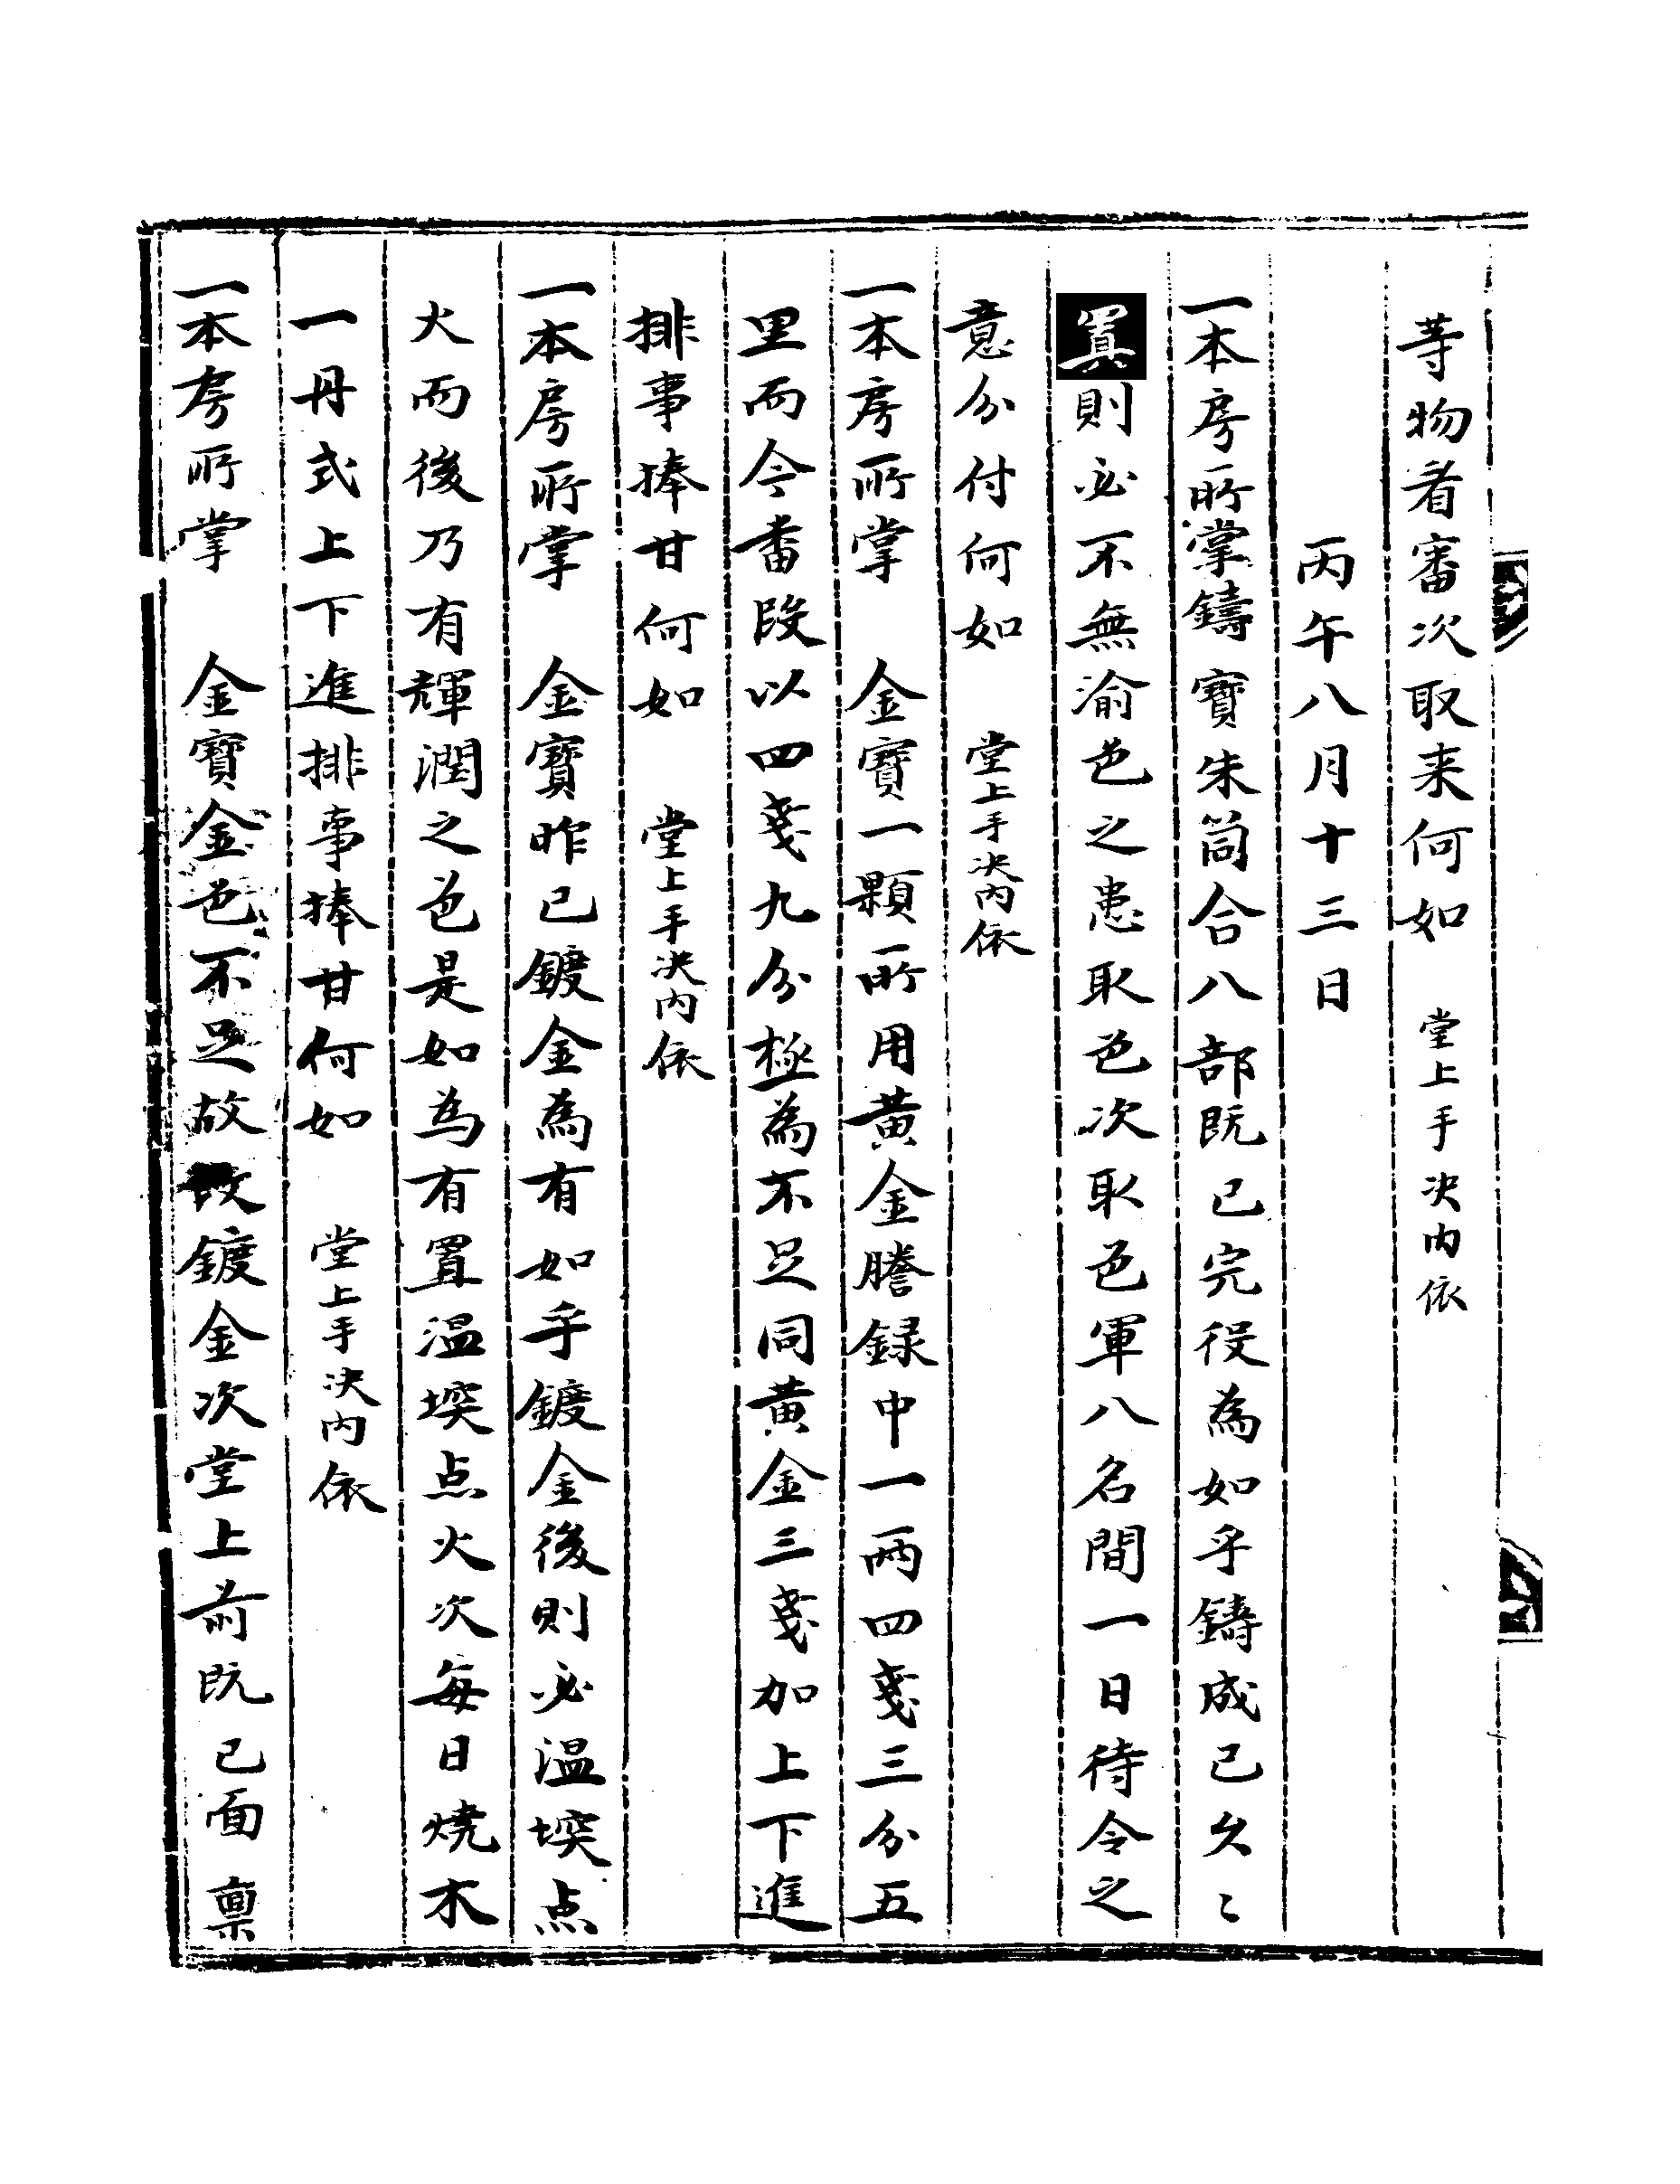 等物看審次取来何如 堂上手决內依
丙午八月十三日
一本房所掌鑄寶朱筒合八部既已完役為如乎鑄成已久〻
置則必不無渝色之患取色次取色軍八名間一日待令之
意分付何如 堂上手决內依
一本房所掌 金寶一顆所用黃金謄録中一兩四戔三分五
里而今番段以四戔九分極為不足同黃金三戔加上下進
排事捧甘何如 堂上手决內依
一本房所掌 金寶昨已鍍金為有如乎鍍金後則必温堗点
火而後乃有輝潤之色是如為有置温堗点火次每日燒木
一丹式上下進排事捧甘何如 堂上手决內依
一本房所掌 金寶金色不足故改鍍金次堂上前既已面稟